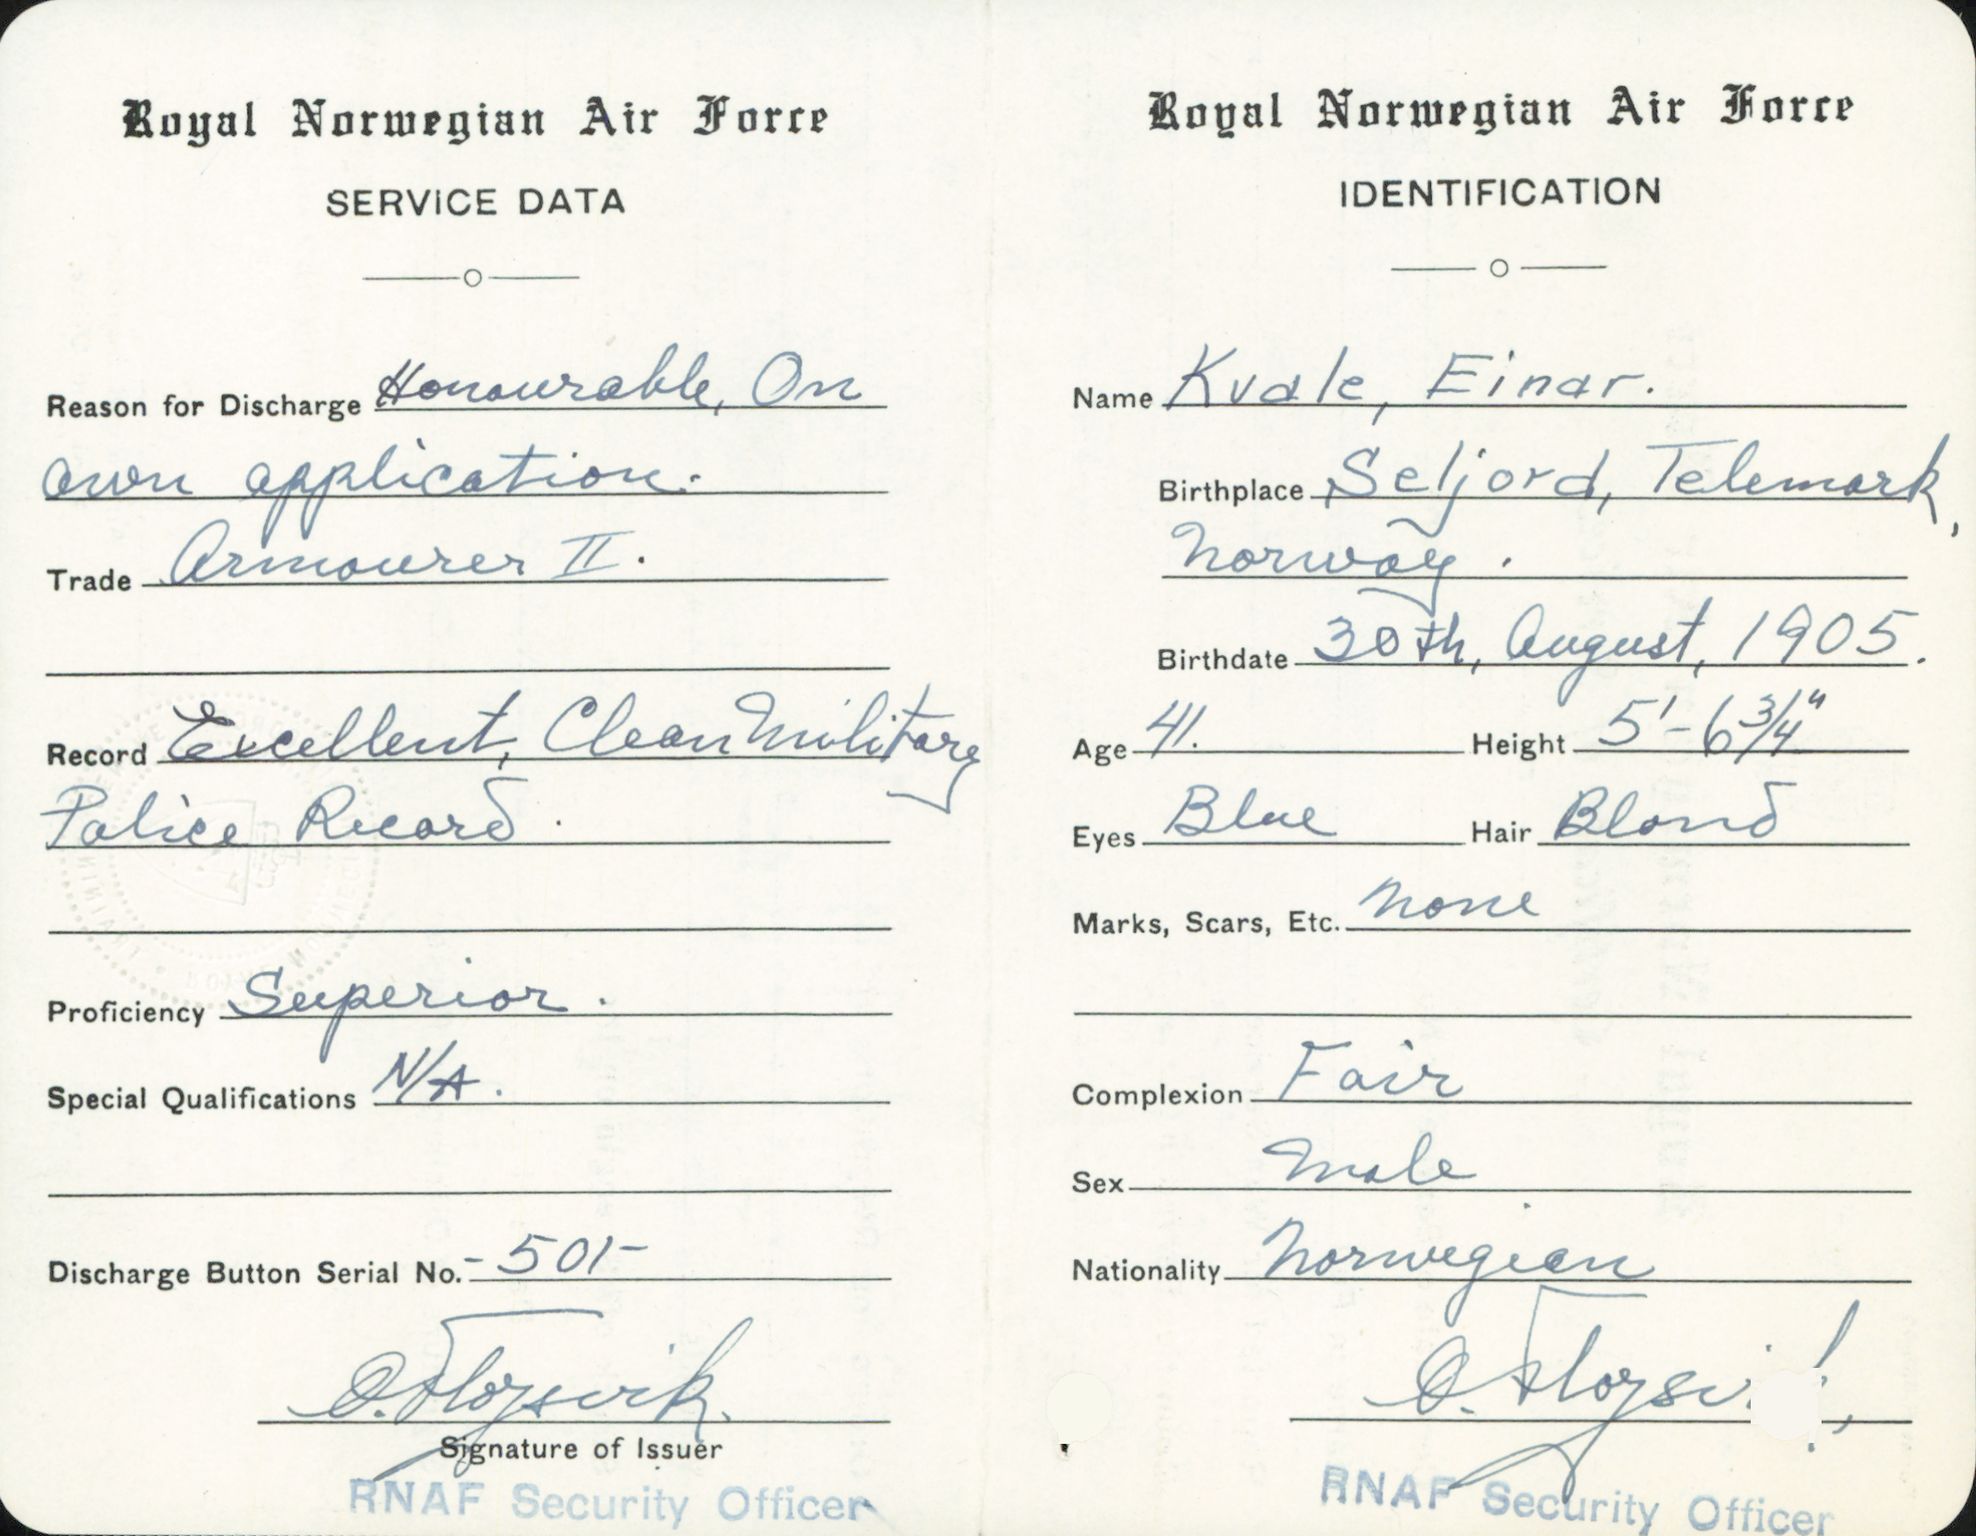 Royal Norwegian Air Force
SERVICE DATA
Reason for Discharge Honourable, On
own application.
Trade Armourer II.
Record Excellent, Clean Military
Police Record.
Proficiency Superior.
Special Qualifications N/A.
Discharge Button Serial No. -501-
O. Fløysvik.
Signature of Issuer
RNAF Security Officer
Royal Norwegian Air Force
IDENTIFICATION
Name Kvale, Einar.
Birthplace Seljord, Telemark,
Norway.
Birthdate 30th, August, 1905.
Age 41. Height 5'-6 3/4"
Eyes Blue Hair Blond
Marks, Scars, Etc. None
Complexion Fair
Sex Male
Nationality Norwegian
RNAF Security Officer